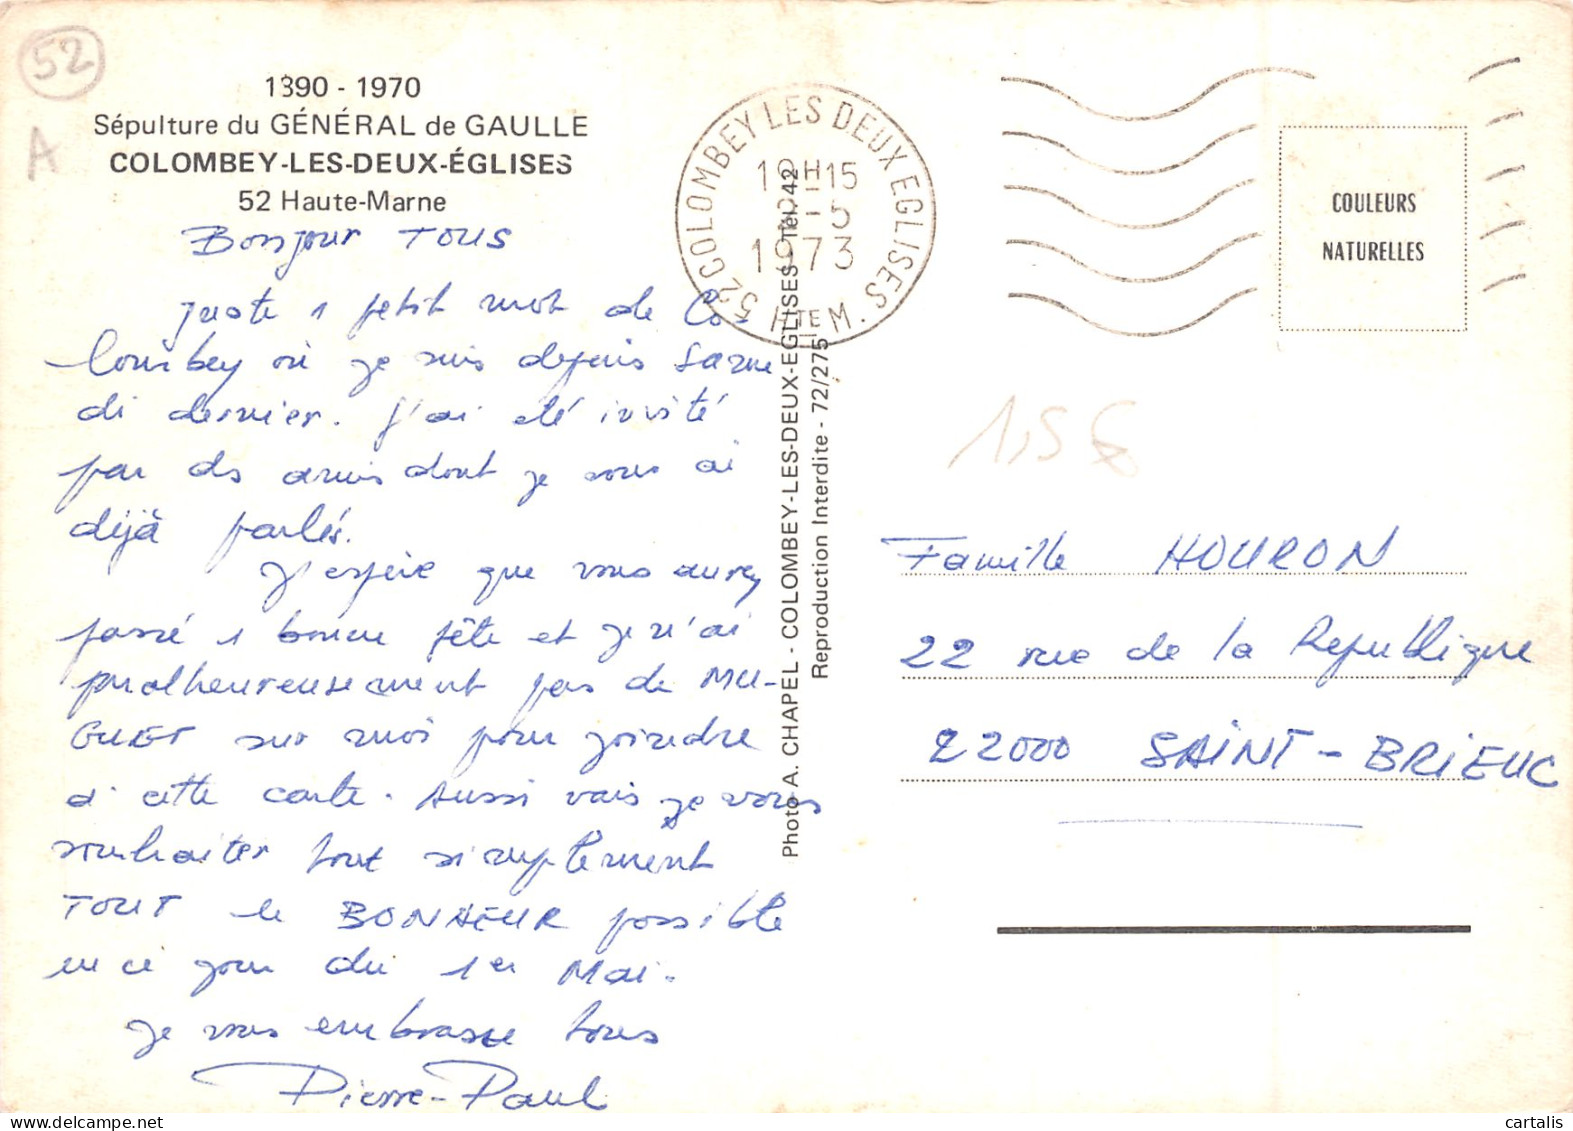 52
A
1890 - 1970
Sépulture du GÉNÉRAL de GAULLE
COLOMBEY-LES-DEUX-ÉGLISES
52 Haute-Marne
Bonjour TOUS
Juste 1 petit mot de Co-
lombey où je suis depuis Same
di dernier. J'ai été invité
par des amis dont je vous ai
déjà parlés.
J'espère que vous aurez
passé 1 bonne fête et je n'ai
malheureusement pas de MU-
GUET sur moi pour joindre
à cette carte. Aussi vais je vous
souhaiter tout simplement
TOUT le BONHEUR possible
en ce jour du 1er Mai.
Je vous embrasse tous
Pierre-Paul
Photo A. CHAPEL - COLOMBEY-LES-DEUX-EGLISES - Tél. 42
Reproduction Interdite - 72/275
52 COLOMBEY LES DEUX EGLISES
HTE M.
H 15
-5
1973
COULEURS
NATURELLES
1,5€
Famille HOURON
22 rue de la Republique
22000 SAINT-BRIEUC
cartalis